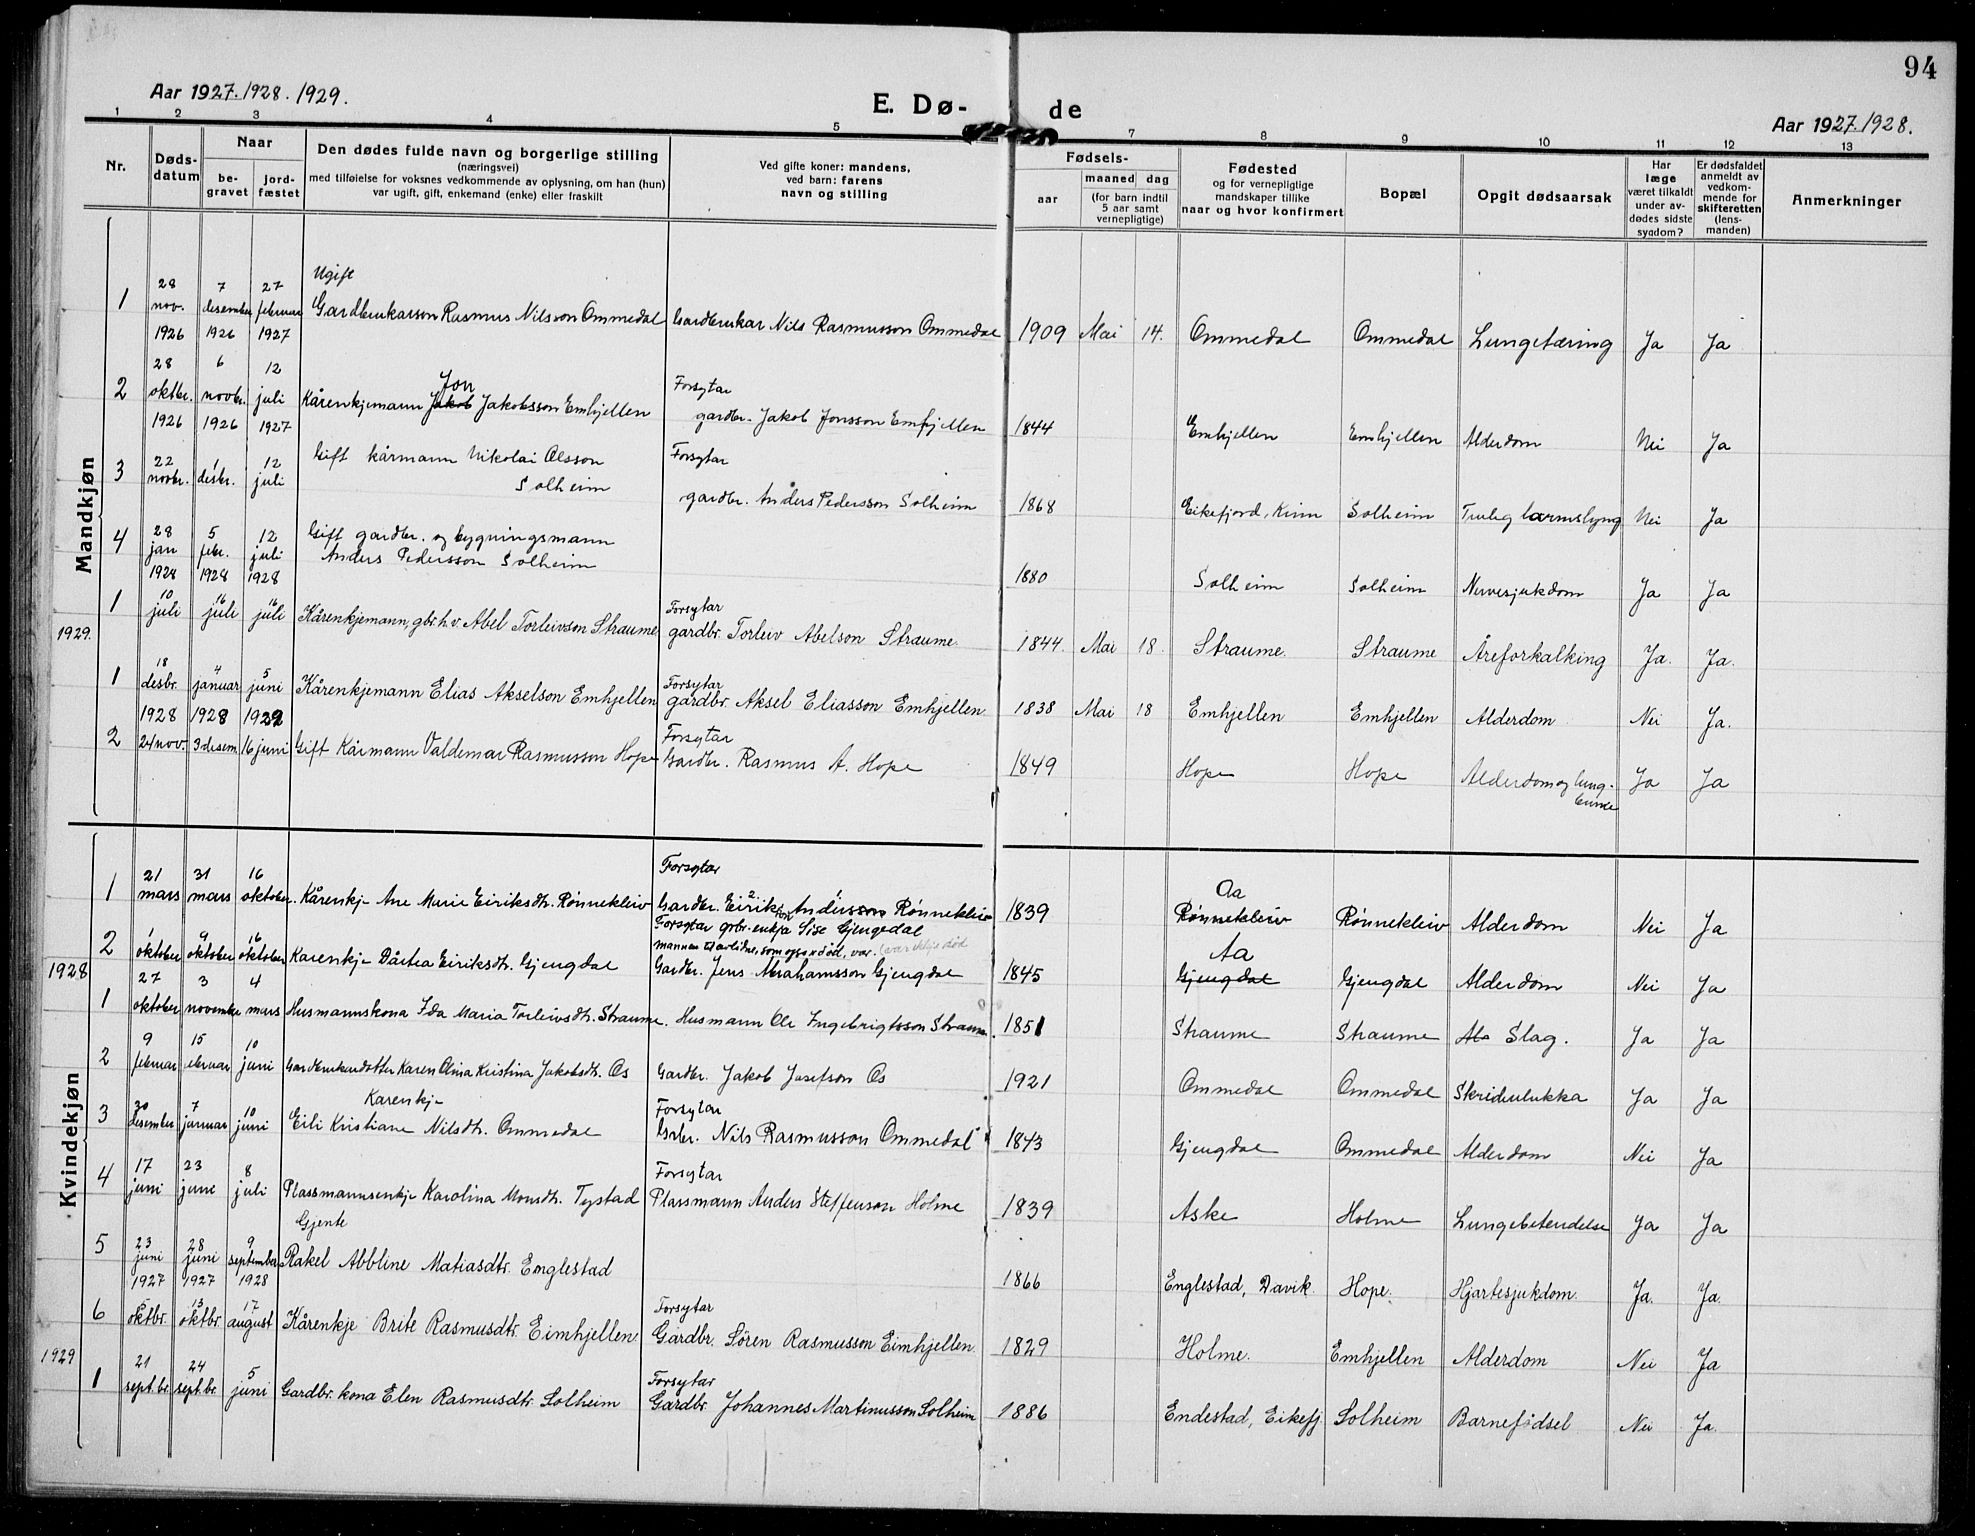 94
Aar 1927. 1928. 1929.
E. Dø- de
Aar 1927. 1928.
1 2 3 4 5 7 8 9 10 11 12 13
Nr.
Døds-
datum
Naar
be-
gravet
jord-
fæstet
Den dødes fulde navn og borgerlige stilling
(næringsvei)
med tilføielse for voksnes vedkommende av oplysning, om han (hun)
var ugift, gift, enkemand (enke) eller fraskilt
Ved gifte koner: mandens,
ved barn: farens
navn og stilling
Fødsels-
aar
maaned dag
(for barn indtil
5 aar samt
vernepligtige)
Fødested
og for vernepligtige
mandskaper tillike
naar og hvor konfirmert
Bopæl
Opgit dødsaarsak
Har
læge
været tilkaldt
under av-
dødes sidste
sygdom?
Er dødsfaldet
anmeldt av
vedkom-
mende for
skifteretten
(lens-
manden)
Anmerkninger
Mandkjøn
1 28 nov. 1926 7 desember 1926 27 februar 1927 Ugift Gardbrukarson Rasmus Nilsson Ommedal Gardbrukar Nils Rasmusson Ommedal 1909 Mai 14. Ommedal Ommedal Lungetæring Ja Ja
2 28 oktbr. 1926 6 novbr. 1926 12 juli 1927 Kårenkjemann Jakob Jon Jakobsson Emhjellen Forsytar gardbr. Jakob Jonsson Emhjellen 1844 Emhjellen Emhjellen Alderdom Nei Ja
3 22 novbr. 1 desbr. 12 juli Gift kårmann Nikolai Olsson Solheim Forsytar gardbr. Anders Pedersson Solheim 1868 Eikefjord, Kinn Solheim Truleg tarmslyng Nei Ja
4 28 jan 1928 5 febr. 1928 12 juli 1928 Gift gardbr. og bygningsmann Anders Pedersson Solheim 1880 Solheim Solheim Nervesjukdom Ja Ja
1929.
1 10 juli 16 juli 16 juli Kårenkjemann, gbr. h.v. Abel Torleivson Straume Forsytar gardbr. Torleiv Abelson Straume. 1844. Mai 18. Straume. Straume Åreforkalking Ja. Ja.
1 18 desbr. 1928 4 januar 1928 5 juni 1929 Kårenkjemann Elias Akselson Emhjellen Forsytar gardbr. Aksel Eliasson Emhjellen. 1838 Mai 18 Emhjellen Emhjellen Alderdom Nei Ja.
2 24 nov. 3 desem. 16 juni Gift Kårmann Valdemar Rasmusson Hope Forsytar Gardbr. Rasmus A. Hope 1849 Hope Hope Alderdom og lung- Ja Ja
Kvindekjøn
1 21 mars 31 mars 16 oktober. Kårenkj- Ane Marie Eiriksdtr. Rønnekleiv Forsytar Gardbr. Eirik Andersson Rønnekleiv 1839 Aa Rønnekleiv Rønnekleiv Alderdom Nei Ja
2 1 oktober 9 oktober 16 oktober Karenkje Dårtea Eiriksdtr. Gjengdal Forsytar gbr. enkja Sise Gjengedal Gardbr. Jens Abrahamsson Gjengdal 1845 Aa Gjengdal Gjengdal Alderdom Nei Ja
1928
1 27 oktober 3 november 4 mars Husmannskona Ida Maria Torleivsdtr. Straume. Husmann Ole Ingebrigtsson Straume. 1851 Straume Straume Slag. Ja Ja
2 9 februar 15 februar 10 juni Gardbrukardotter Karen Olina Kristina Jakobsdtr. Os Gardbr. Jakob Josefson Os 1921 Ommedal Ommedal Skrideulukka Ja Ja
3 30 desember 7 januar 10 juni Karenkje Eili Kristiane Nilsdtr. Ommedal Forsytar Gbr. Nils Rasmusson Ommedal 1843 Gjengdal Ommedal Alderdom Nei Ja
4 17 juni 23 june 8 juli Plassmannsenkje Karolina Monsdtr. Tystad Forsytar Plassmann Anders Steffenson Holme 1839 Aske Holme Lungebetendelse Ja Ja
5 23 juni 1927 28 juni 1927 9 september 1928 Gjente Rakel Abbline Matiasdtr. Englestad 1866 Englestad, Davik. Hope. Hjartesjukdom. Ja. Ja.
6 5 oktbr. 13 oktbr 17 august Kårenkje Brite Rasmusdtr. Eimhjellen Forsytar Gardbr. Søren Rasmusson Eimhjellen. 1829 Holme. Emhjellen Alderdom Nei Ja
1929
1 21 sept.br. 24 sept.br 5 juni Gardbr. kona Elen Rasmusdtr. Solheim Forsytar Gardbr. Johannes Martinusson Solheim 1886 Endestad, Eikefj. Solheim Barnefødsel Nei Ja.